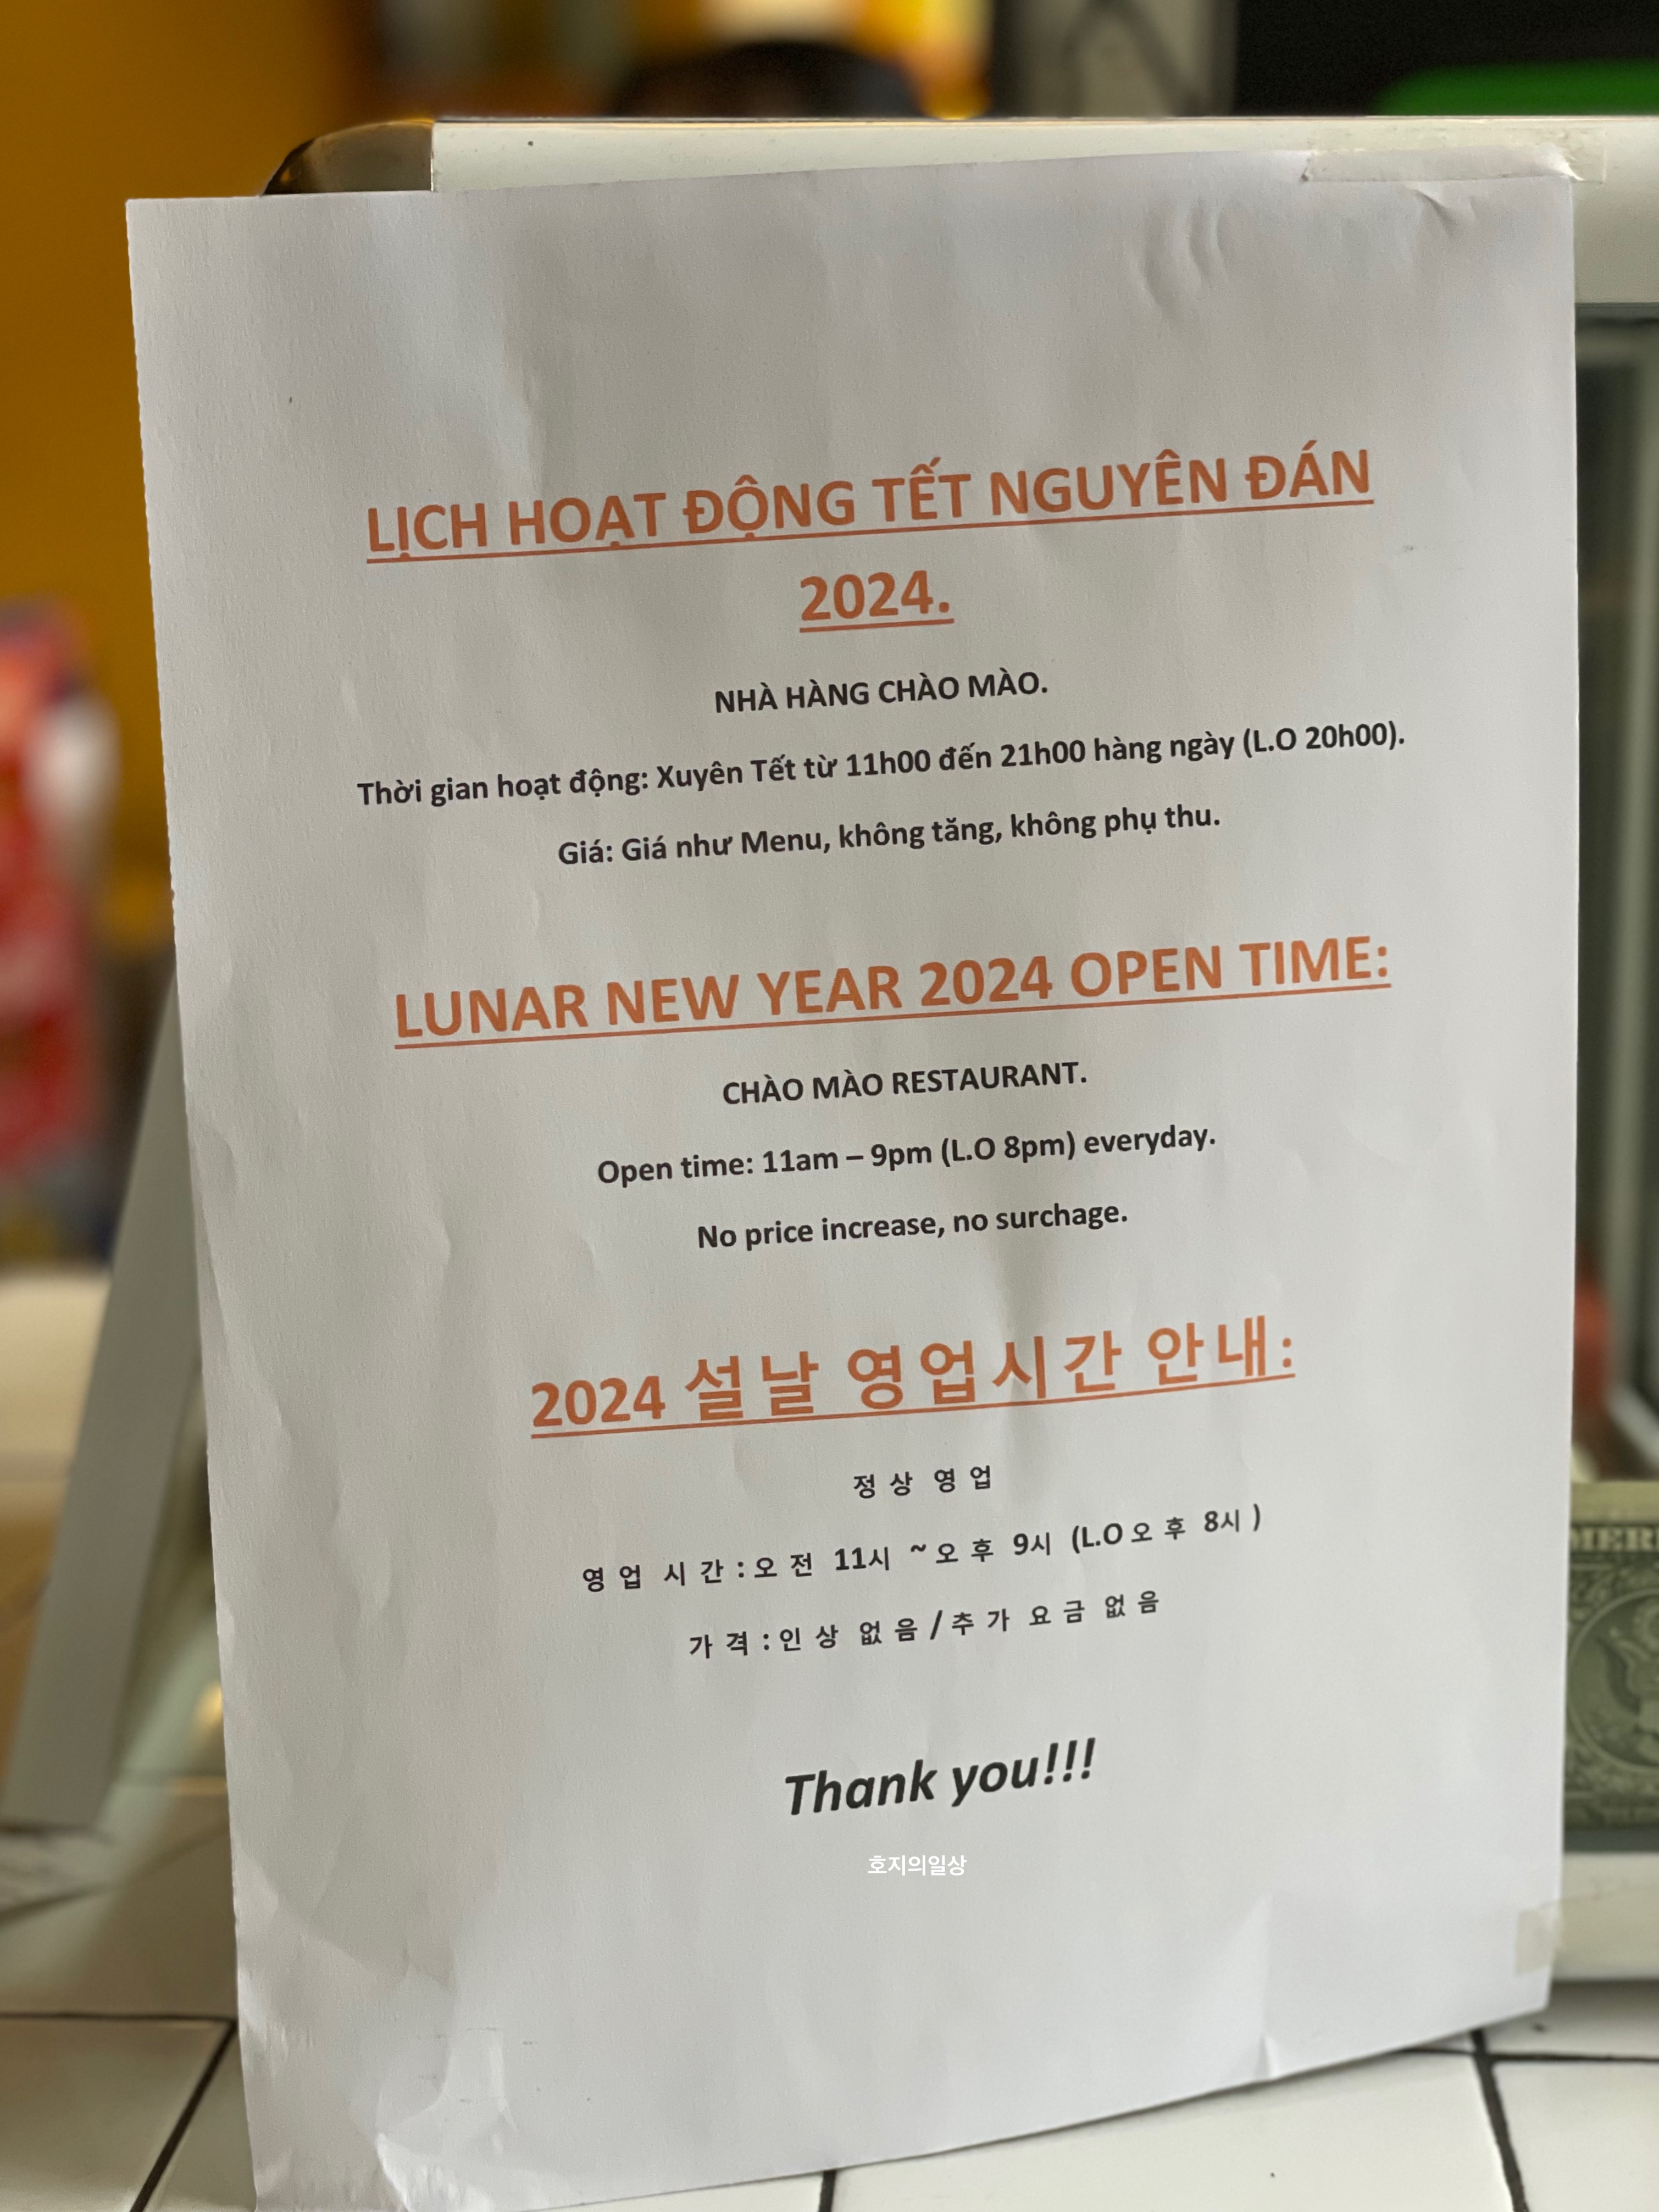 LỊCH HOẠT ĐỘNG TẾT NGUYÊN ĐÁN
2024.
NHÀ HÀNG CHÀO MÀO.
Thời gian hoạt động: Xuyên Tết từ 11h00 đến 21h00 hàng ngày (L.O 20h00).
Giá: Giá như Menu, không tăng, không phụ thu.
LUNAR NEW YEAR 2024 OPEN TIME:
CHÀO MÀO RESTAURANT.
Open time: 11am – 9pm (L.O 8pm) everyday.
No price increase, no surchage.
2024 설날 영업시간 안내:
정상 영업
영업 시간 : 오전 11시 ~ 오후 9시 (L.O 오후 8시 )
가격 : 인상 없음 / 추가 요금 없음
Thank you!!!
호지의일상